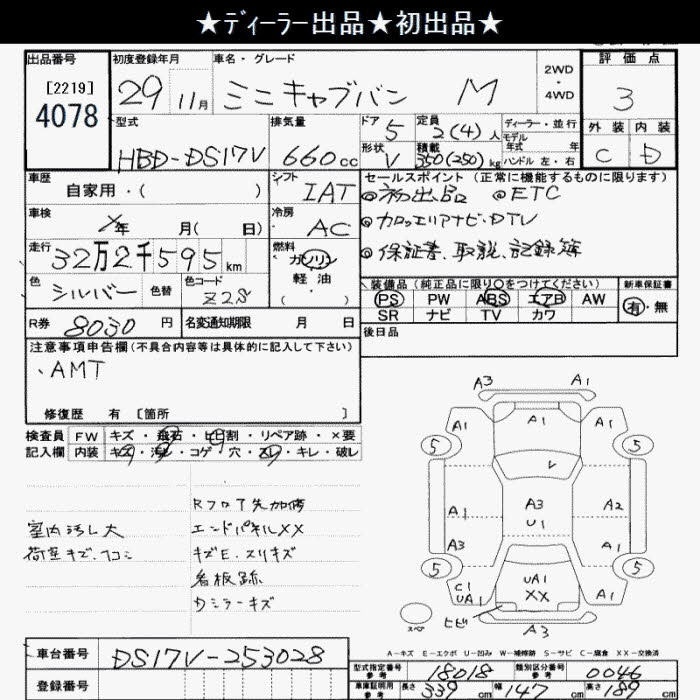 ★ディーラー出品★初出品★
出品番号
[2219]
4078
初度登録年月
29 11月
車名・グレード
ミニキャブバン M
2WD
・
4WD
評価点
3
外装 内装
C D
型式
HBD-DS17V
排気量
660cc
ドア 5
形状 V
定員
2(4)人
積載
350(250)kg
ディーラー・並行
モデル
年式 年式
ハンドル 左・右
車歴
自家用・( )
シフト
IAT
車検
メ年 月( 日)
冷房
AC
走行
32万2千595km
燃料
ガソリン
・
軽油
( )
色
シルバー
色替
色コード
Z28
R券 8030円
名変通知期限 月 日
セールスポイント (正常に機能するものに限ります)
◎初出品 ◎ETC
◎カロッエリアナビ・DTV
◎保証書、取説、記録簿
装備品(純正品に限り○をつけてください)
PS PW ABS エアB AW
SR ナビ TV カワ
新車保証書
有・無
後日品
注意事項申告欄(不具合内容等は具体的に記入して下さい)
、AMT
修復歴 有 [箇所 ]
検査員
記入欄
FW キズ・飛石・ヒビ割・リペア跡・×要
内装 キズ・汚レ・コゲ・穴・スレ・キレ・破レ
室内汚レ大
荷室キズ、凹コミ
Rフロア先加修
エンドパネルXX
キズE、スリキズ
看板跡
ウミラーキズ
A3 A1
A1 A1 A1
5 5
V
A1 A3 A2
U1
A3 A1
5 5
C1
UA1
UA1
XX
ヒビ
スペア
A3
A-キズ E-エクボ U-凹み W-補修跡 S-サビ C-腐食 XX-交換済
車台番号 DS17V-253028
登録番号
型式指定番号
参考
18018
類別区分番号
参考
0046
車庫証明用
参考
長さ 339cm 幅 147cm 高さ 189cm